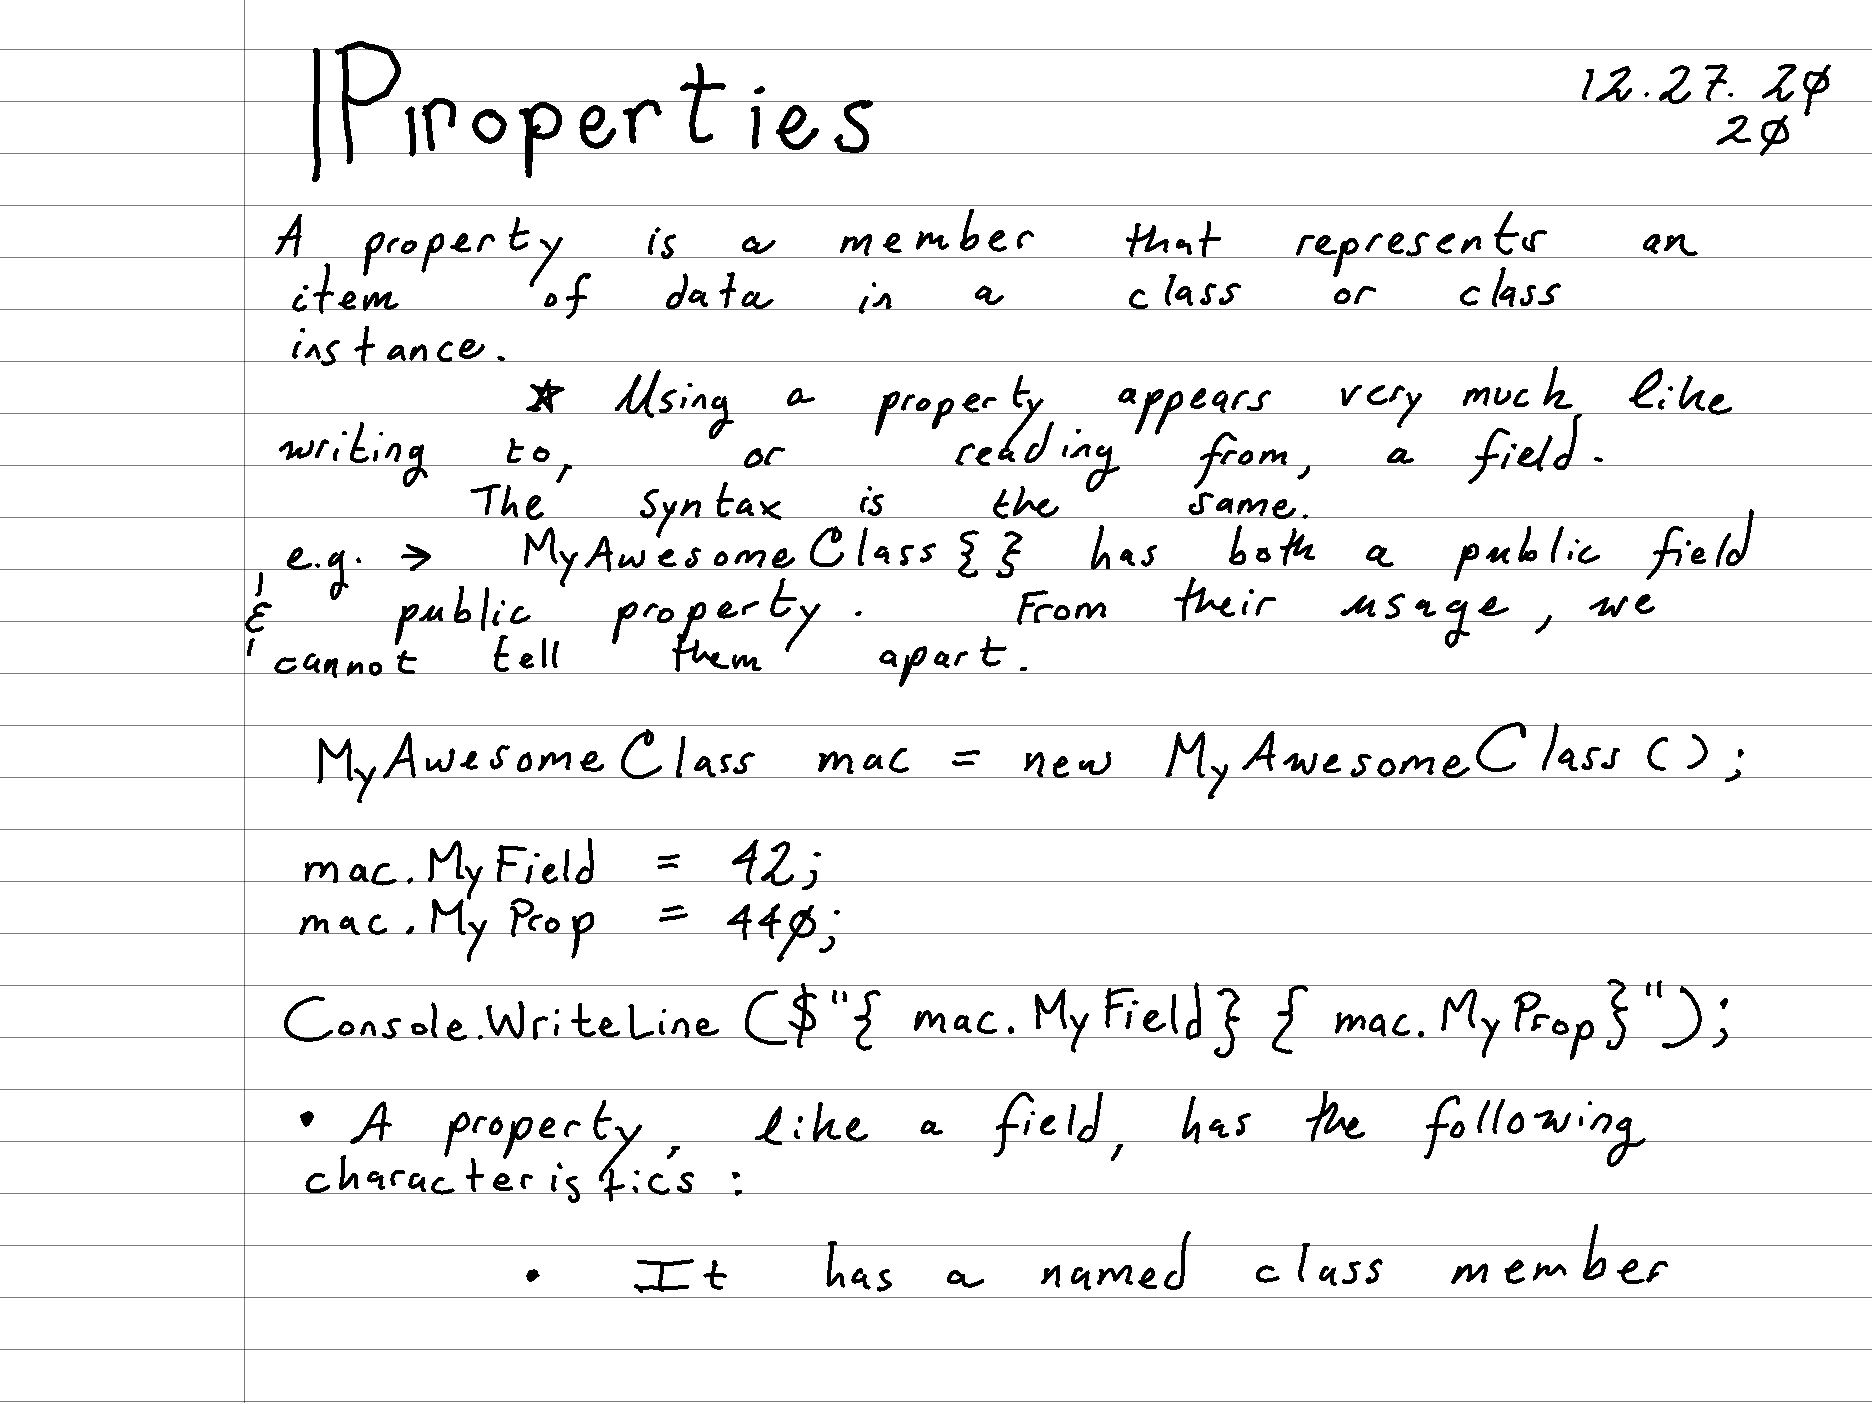 Properties
12.27.20
20
A property is a member that represents an
item of data in a class or class
instance.
* Using a property appears very much like
writing to, or reading from, a field.
The syntax is the same.
e.g. → MyAwesomeClass{} has both a public field
& public property. From their usage, we
cannot tell them apart.
MyAwesomeClass mac = new MyAwesomeClass();
mac.MyField = 42;
mac.MyProp = 440;
Console.WriteLine($"{mac.MyField} {mac.MyProp}");
• A property, like a field, has the following
characteristics:
• It has a named class member